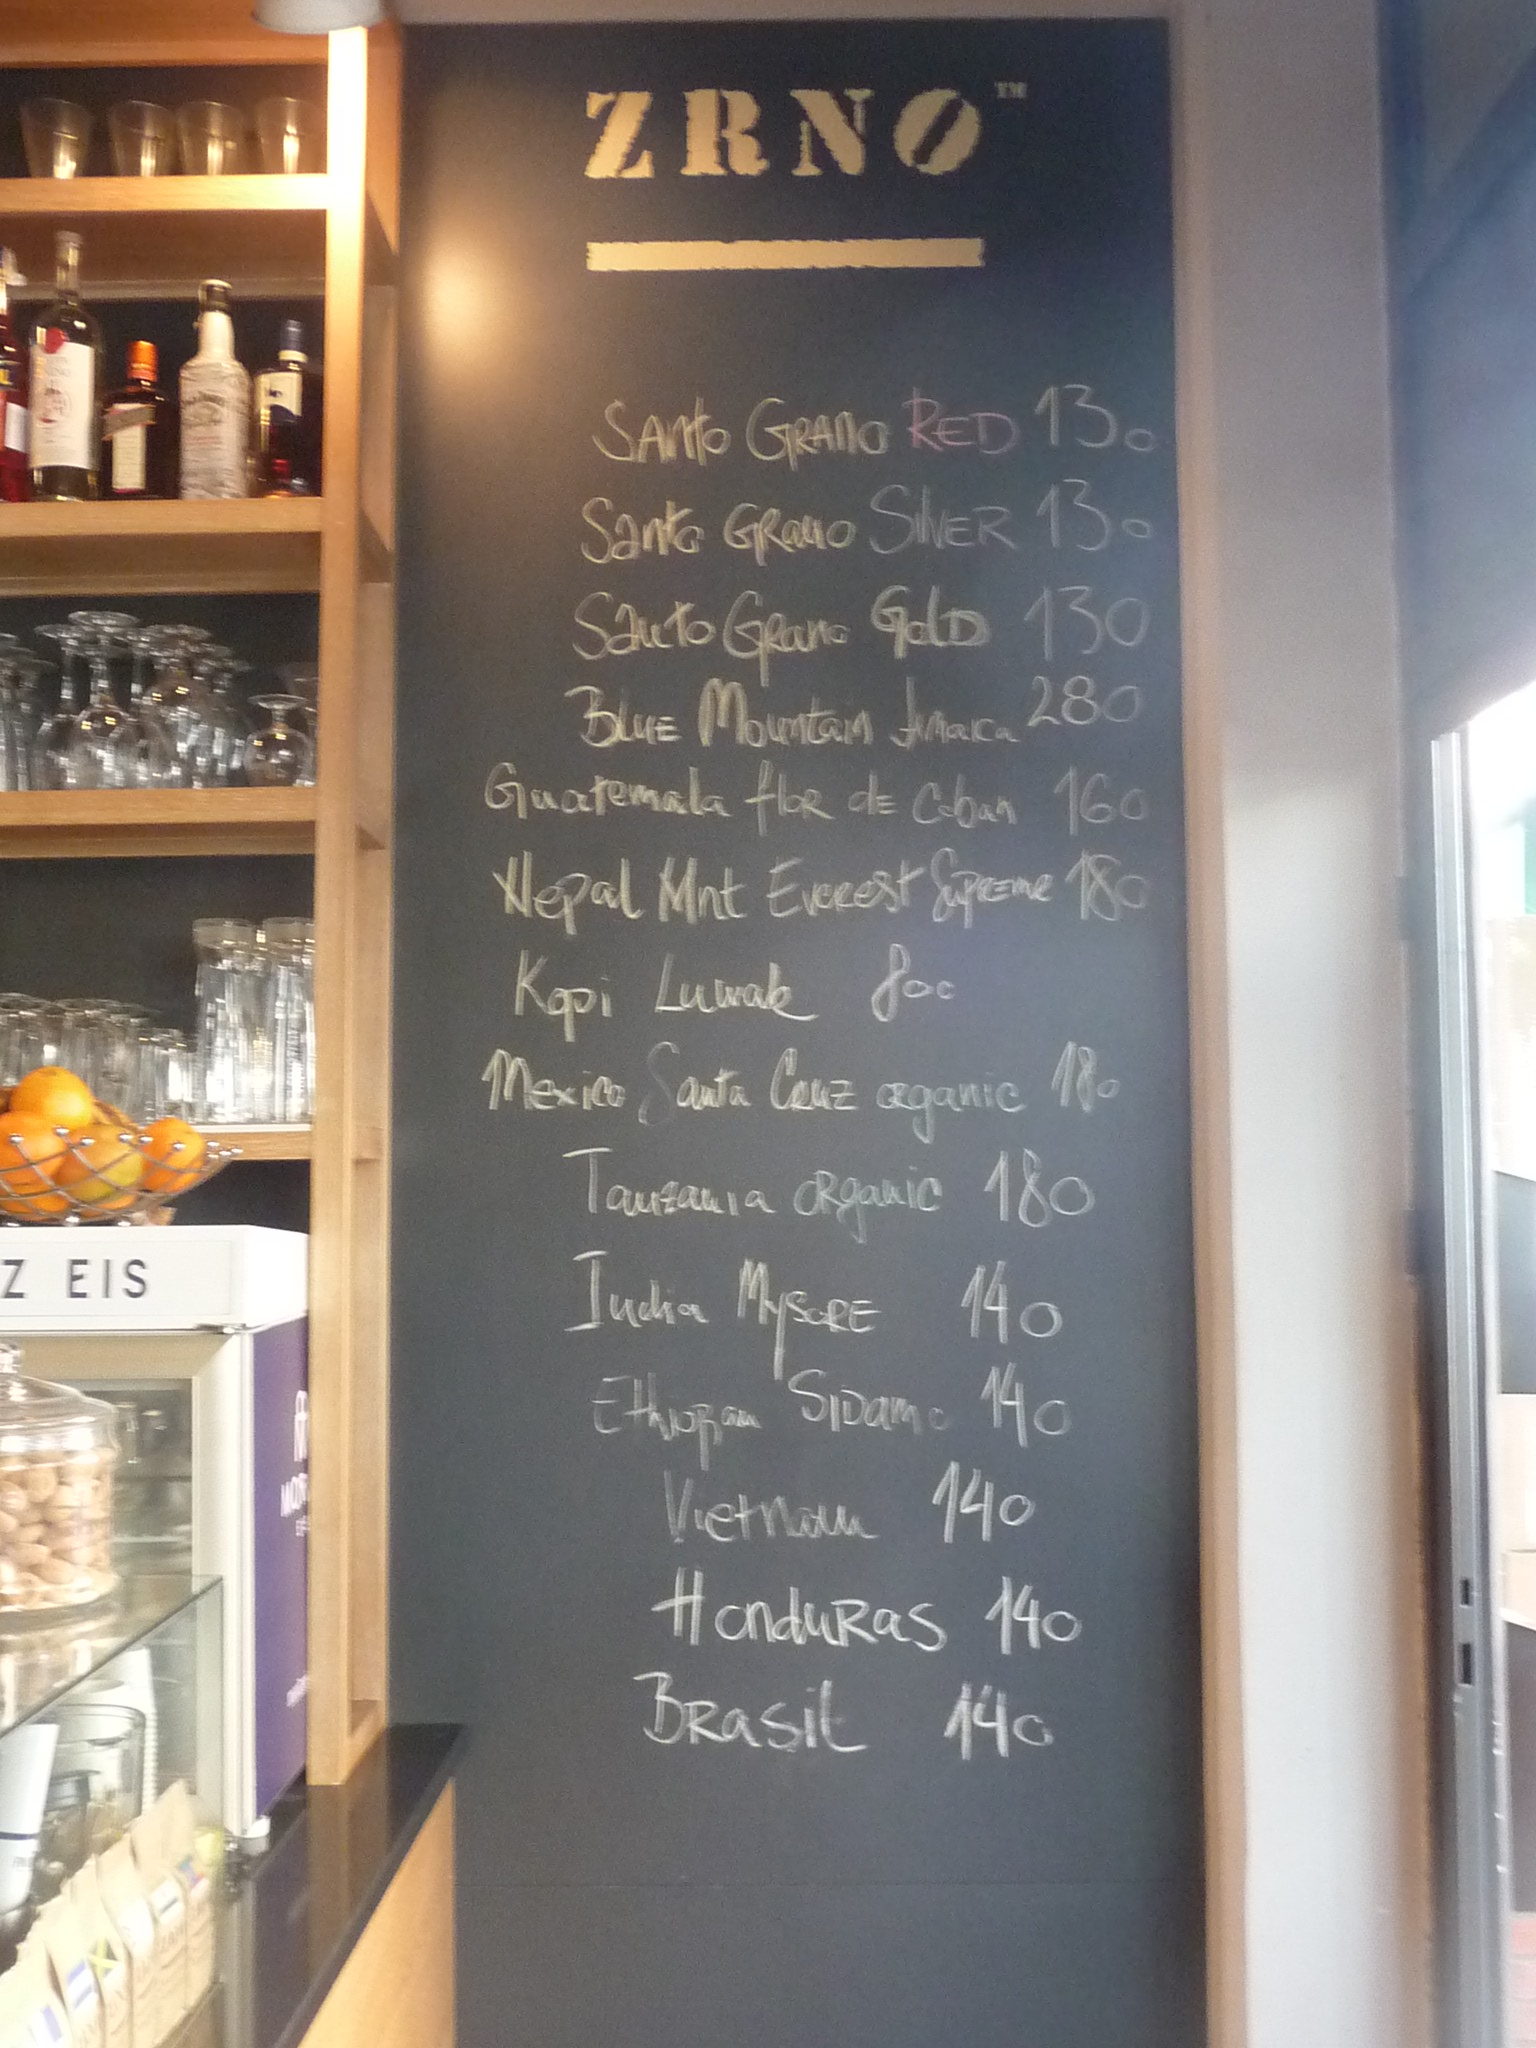 ZRNO™
SANto GRANO RED 130
Santo GRANO SilVER 130
Santo GRano GolD 130
BluE Mountain Jamaica 280
Guatemala flor de Coban 160
Nepal Mnt Everest Supreme 180
Kopi Luwak 800
Mexico Santa Cruz organic 180
Tanzania organic 180
India MysoRE 140
Ethiopian SiDamo 140
Vietnam 140
HonduRas 140
BRasil 140
Z EIS